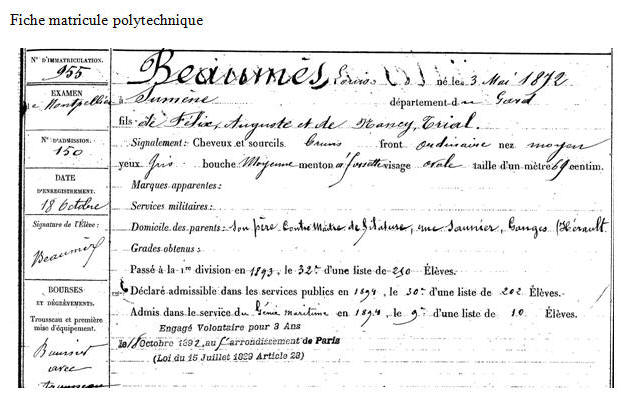 Fiche matricule polytechnique
N° D'IMMATRICULATION.
955
EXAMEN
de Montpellier
N° D'ADMISSION.
150
DATE
D'ENREGISTREMENT.
18 Octobre
Signature de l'Élève :
Beaumès
BOURSES
ET DÉGRÈVEMENTS.
Trousseau et première
mise d'équipement.
Boursier
avec
trousseau
Beaumès, Louis ( ) né le 3 Mai 1872
à Sumène département du Gard
fils de Félix, Auguste et de Nancy, Trial.
Signalement : Cheveux et sourcils bruns front ordinaire nez moyen
yeux gris bouche Moyenne menton à fossette visage ovale taille d'un mètre 69 centim.
Marques apparentes :
Services militaires :
Domicile des parents : son père Contre Maître de filature, rue Saunier, Ganges (Hérault
Grades obtenus :
Passé à la 1re division en 1893, le 32e d'une liste de 210 Élèves.
Déclaré admissible dans les services publics en 1894, le 30e d'une liste de 202 Élèves.
Admis dans le service du Génie maritime en 1894, le 9e d'une liste de 10 Élèves.
Engagé Volontaire pour 3 Ans
le 18 Octobre 1892, au arrondissement de Paris
(Loi du 15 Juillet 1889 Article 28)